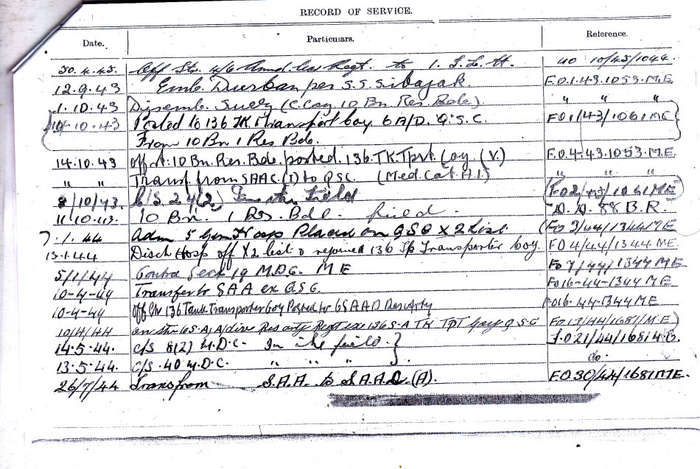 RECORD OF SERVICE.
Date. Particulars. Reference.
30.4.43. Off Str. 4/6 Armd. Car Regt. to 1. S.S.H. 40 10/43/1044
12.9.43 Emb. Durban per S.S. Sibajak. F.O.1.43.1053.M.E
1.10.43 Disemb. Suez (C. Coy 10 Bn. Res. Bde.) " " "
10.43 Posted to 136 TK Transport Coy 6 A/D. Q.S.C. F.O.1/43/1061 M.E
From 10 Bn 1 Res. Bde.
14.10.43 off str. 10 Bn. Res. Bde. posted 136 TK. Tprt. Coy. (V.) F.O.4-43.1053.M.E.
" " Transf. from SAAC (1) to QSC. (Med. Cat. A.1.) " " "
8/10/43. C/S. 24(2). Field F.O.2/43/1061 M.E
11.10.43. 10 Bn. 1 Res. Bde. field. D.A. 58 B.R.
7.1.44 Adm 5 Gen Hosp Placed on QSC X2 List F.O.2/44/1344 ME
13.1.44 Disch Hosp off X2 list & rejoined 136 Tk Transporter Coy F.O 4/44/1344 ME.
5/1/44 Contra Sec 19 M.D.C. M E FO 7/44/1344 ME
10-4-44 Transfer to SAA ex QSC. FO16-44-1344 ME
10-4-44 Off Str 136 Tank Transporter Coy Posted to 6 SAAD Res Arty FO16-44-1344 ME
10/4/44 on Str 6 S.A. A/Div Res Arty Regt ex 136 S.A TK TPT Coy Q.S.C F.O.13/44/1681/M.E)
14.5.44. C/S 8(2) M.D.C. In the field. F.O.21/44/1681
13.5.44. C/S. 40 M.D.C. " " " do.
26/7/44 Trans from S.A.A. to S.A.A.C. (A). F.O.30/44/1681 M.E.